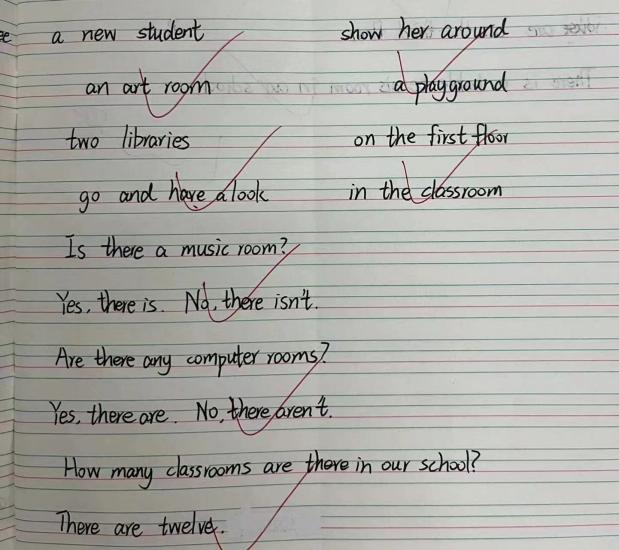 a new student show her around
an art room a playground
two libraries on the first floor
go and have a look in the classroom
Is there a music room?
Yes, there is. No, there isn't.
Are there any computer rooms?
Yes, there are. No, there aren't.
How many classrooms are there in our school?
There are twelve.